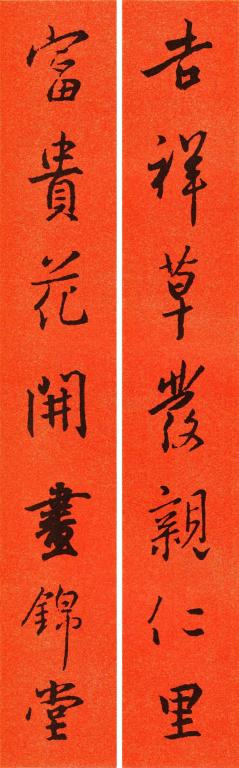 吉祥草發親仁里
富貴花開畫錦堂